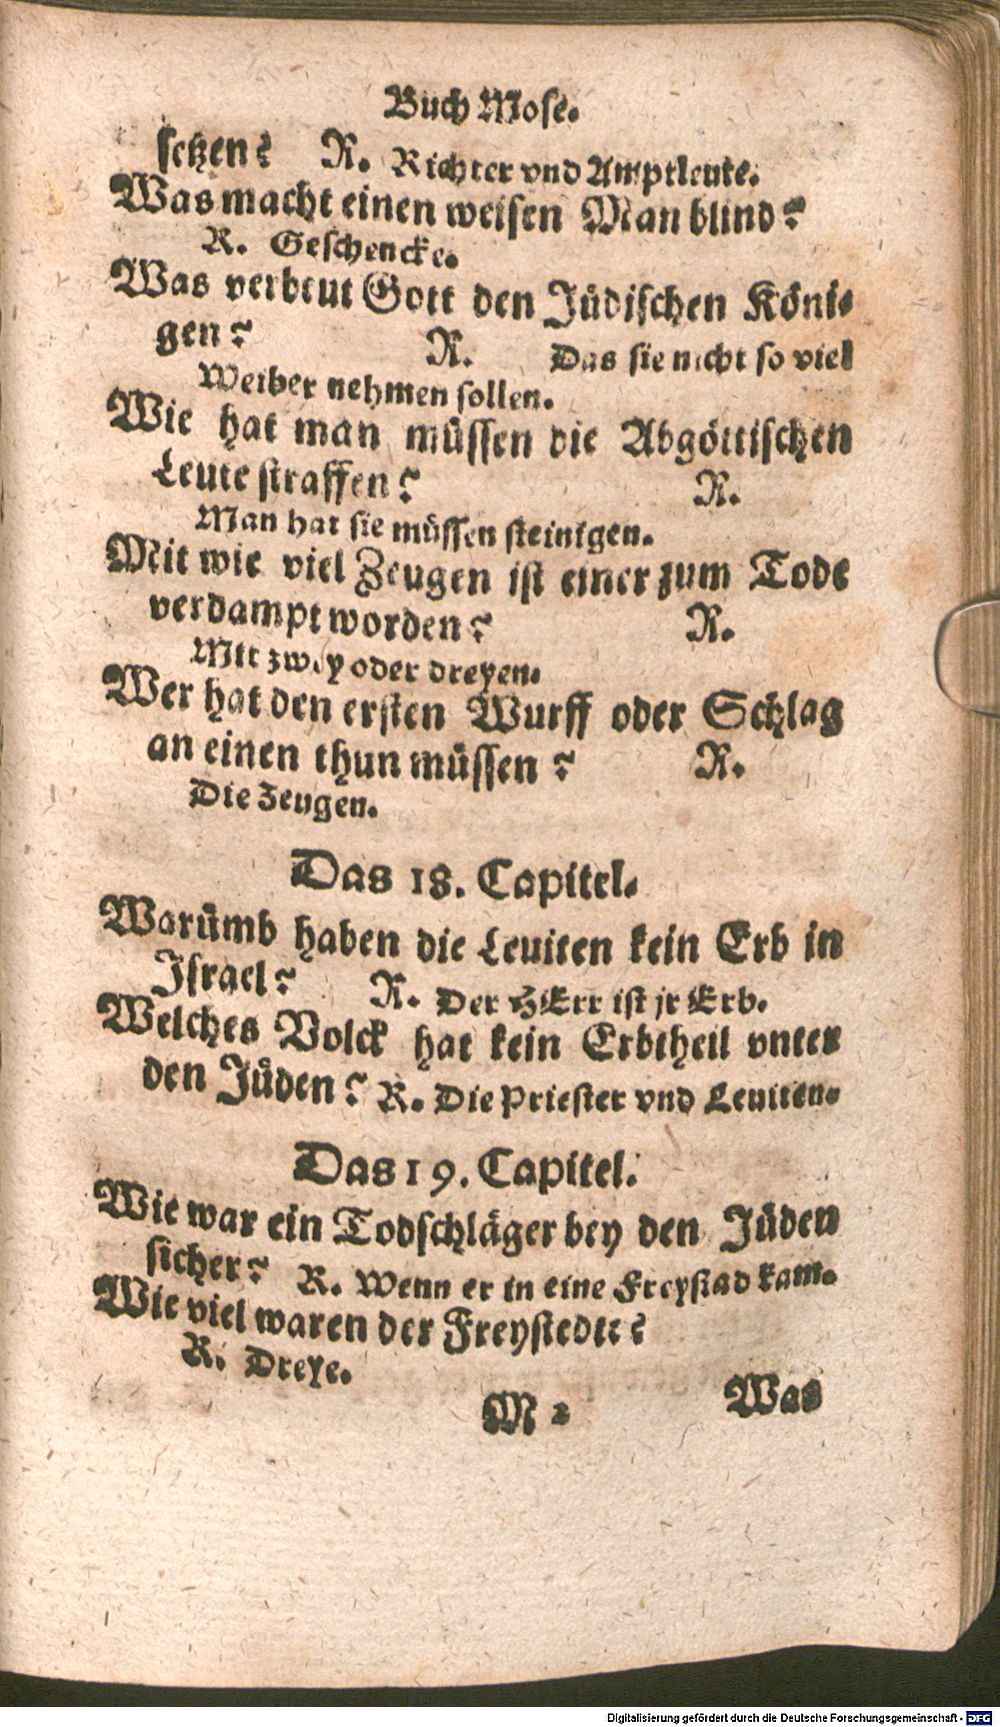 Buch Mose.
setzen? R. Richter vnd Amptleute.
Was macht einen weisen Man blind?
R. Geschencke.
Was verbeut Gott den Jüdischen Köni-
gen? R. Das sie nicht so viel
Weiber nehmen sollen.
Wie hat man müssen die Abgöttischen
Leute straffen? R.
Man hat sie müssen steinigen.
Mit wie viel Zeugen ist einer zum Tode
verdampt worden? R.
Mit zwey oder dreyen.
Wer hat den ersten Wurff oder Schlag
an einen thun müssen? R.
Die Zeugen.
Das 18. Capitel.
Warümb haben die Leuiten kein Erb in
Israel? R. Der HErr ist jr Erb.
Welches Volck hat kein Erbtheil vnter
den Jüden? R. Die Priester vnd Leuiten.
Das 19. Capitel.
Wie war ein Todschläger bey den Jüden
sicher? R. Wenn er in eine Freystad kam.
Wie viel waren der Freystedte?
R. Dreye.
M 2 Was
Digitalisierung gefördert durch die Deutsche Forschungsgemeinschaft - DFG